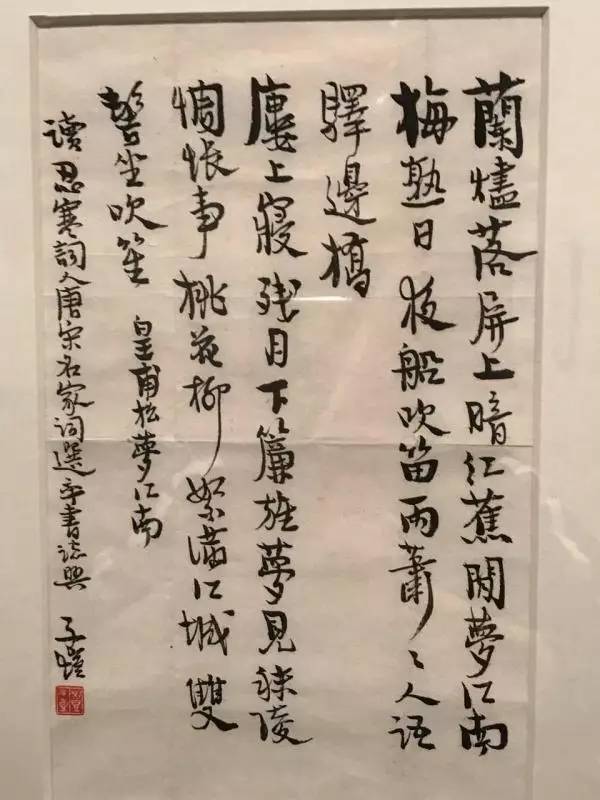 蘭燼落屏上暗红蕉閒夢江南
梅熟日夜船吹笛雨蕭々人語
驛邊橋
廔上寢残月下簾旌夢見秣陵
惆悵事桃花柳絮滿江城雙
髻坐吹笙 皇甫松夢江南
讀忍寒詞人唐宋名家詞選率書誌興 子愷